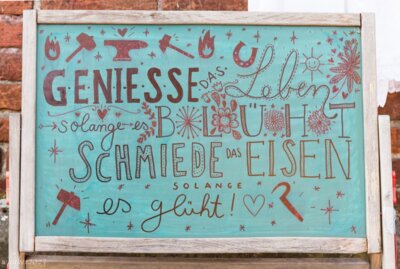 GENIESSE DAS Leben
solange es BLÜHT
SCHMIEDE DAS EISEN
SOLANGE
es glüht!